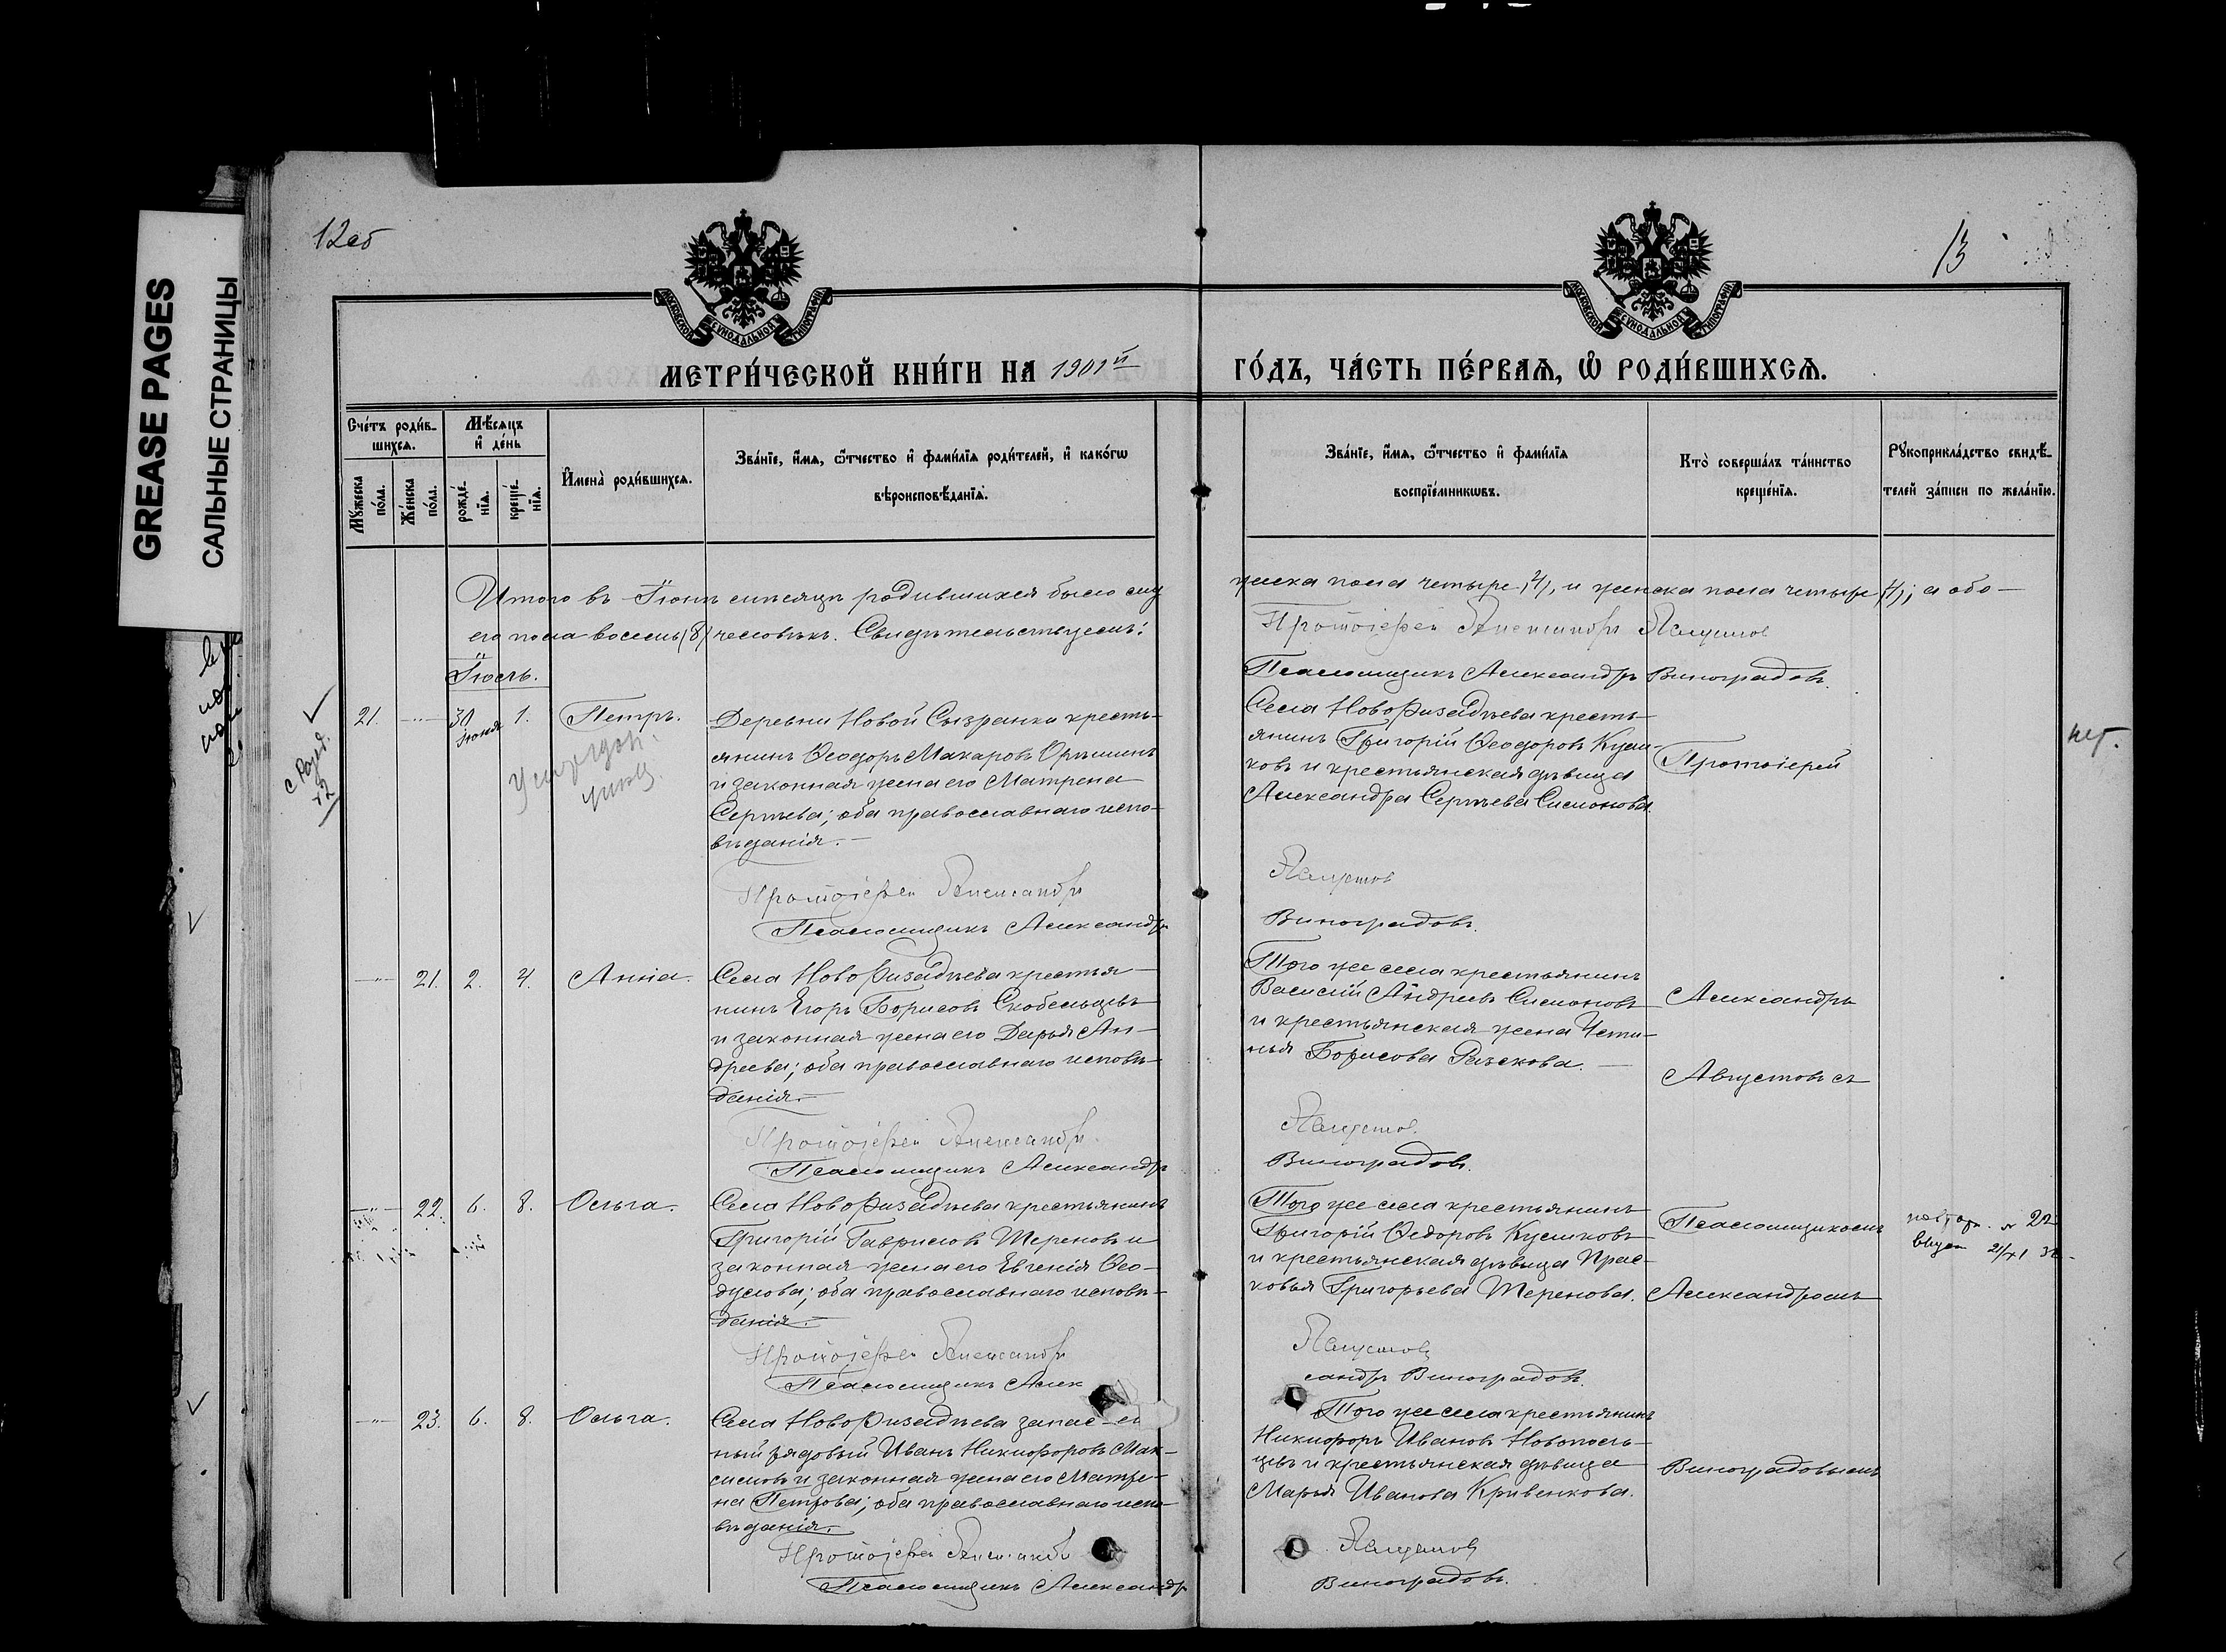 GREASE PAGES
САЛЬНЫЕ СТРАНИЦЫ
12об
13
МОСКОВСКОЙ СѴНОДАЛЬНОЙ ТИПОГРАФІИ
МОСКОВСКОЙ СѴНОДАЛЬНОЙ ТИПОГРАФІИ
МЕТРИ́ЧЕСКОЙ КНИ́ГИ НА 1901й
ГО́ДЪ, ЧА́СТЬ ПЕ́РВАѦ, Ѡ҆ РОДИ́ВШИХСѦ.
Сче́тъ роди́в-
шихсѧ.
Мѣ́сѧцъ
и҆ де́нь
Мꙋ́жеска
по́ла.
Же́нска
по́ла.
рожде́-
нїѧ.
креще́-
нїѧ.
И҆мена̀ роди́вшихсѧ.
Зва́нїе, и҆́мѧ, ѻ҆́тчество и҆ фами́лїѧ роди́телей, и҆ како́гѡ
вѣроисповѣ́данїѧ.
Зва́нїе, и҆́мѧ, ѻ҆́тчество и҆ фами́лїѧ
воспрїе́мникѡвъ.
Кто̀ соверша́лъ та́инство
креще́нїѧ.
Рꙋкоприкла́дство свидѣ́-
телей за́писи по жела́нїю.
Итого въ Іюнѣ мѣсяцѣ родившихся было му
жеска пола четыре (4), и женска пола четыре (4); а обо-
его пола восемь (8) человѣкъ. Свидѣтельствуемъ:
Протоіерей Александръ Августов
Псаломщикъ Александръ Виноградовъ.
Іюль.
21.
30
Іюня
1.
Петръ.
Деревни Новой Сызранки кресть-
янинъ Ѳеодоръ Макаровъ
и законная жена его Матрена
Сергѣева; оба православнаго испо-
вѣданія.-
Села Новофизадѣева кресть-
янинъ Григорій Ѳеодоровъ Кули-
ковъ и крестьянская дѣвица
Александра Сергѣева Симонова.
Протоіерей
нет.
Протоіерей Александръ
Августов
Псаломщикъ Александръ
Виноградовъ.
21.
2.
4.
Анна.
Села Новофизадѣева крестья-
нинъ Егоръ Борисовъ Скобельцевъ
и законная жена его Дарья Ан-
дреева; оба православнаго исповѣ-
данія.-
Того же села крестьянинъ
Василій Андреевъ Симоновъ
и крестьянская жена Усти-
нья Борисова
Александръ
Августовъ съ
Протоіерей Александръ.
Августов.
Псаломщикъ Александръ
Виноградовъ.
22.
6.
8.
Ольга.
Села Новофизадѣева крестьянинъ
Григорій Гавриловъ Тереновъ и
законная жена его Евгенія Ѳео-
дулова; оба православнаго исповѣ-
данія.-
Того же села крестьянинъ
Григорій Ѳедоровъ Куликовъ
и крестьянская дѣвица Прас-
ковья Григорьева Теренова.
Псаломщикомъ
Александромъ
Протоіерей Александръ
Августовъ
Псаломщикъ Алек
сандръ Виноградовъ.
23.
6.
8.
Ольга.
Села Новофизадѣева запас-
ный рядовый Иванъ Никифоровъ Мак-
симовъ и законная жена его Матре-
на Петрова; оба православнаго испо-
вѣданія.-
Того же села крестьянинъ
Никифоръ Ивановъ Новополь-
цевъ и крестьянская дѣвица
Марья Иванова Кривенкова.
Виноградовымъ
Протоіерей Александръ
Августовъ
Псаломщикъ Александръ
Виноградовъ.